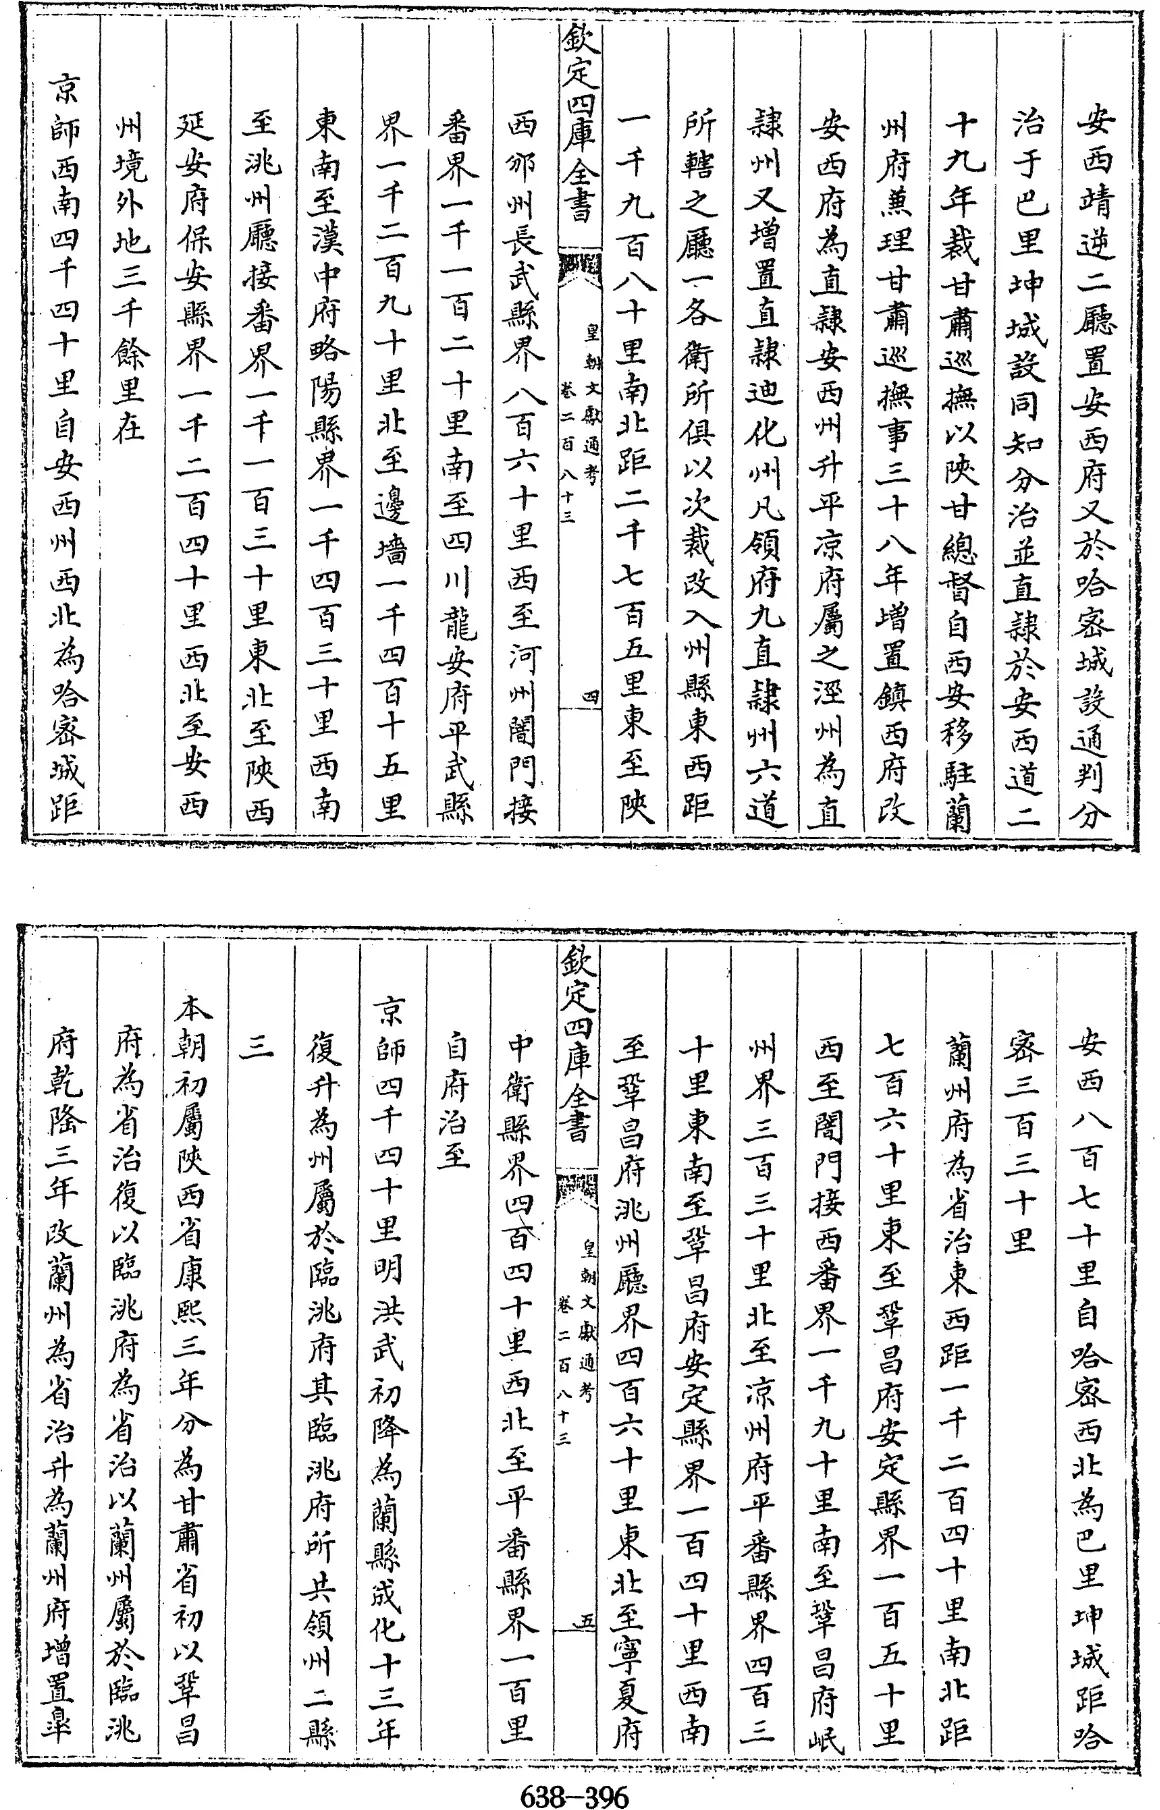 安西靖逆二廳置安西府又於哈密城設通判分
治于巴里坤城設同知分治並直隷於安西道二
十九年裁甘肅巡撫以陜甘總督自西安移駐蘭
州府兼理甘肅巡撫事三十八年增置鎮西府改
安西府為直隷安西州升平凉府屬之涇州為直
隷州又增置直隷迪化州凡領府九直隷州六道
所轄之廳一各衛所俱以次裁改入州縣東西距
一千九百八十里南北距二千七百五里東至陜
欽定四庫全書
皇朝文獻通考
卷二百八十三
四
西邠州長武縣界八百六十里西至河州闇門接
番界一千一百二十里南至四川龍安府平武縣
界一千二百九十里北至邊墻一千四百十五里
東南至漢中府略陽縣界一千四百三十里西南
至洮州廳接番界一千一百三十里東北至陜西
延安府保安縣界一千二百四十里西北至安西
州境外地三千餘里在
京師西南四千四十里自安西州西北為哈密城距
安西八百七十里自哈密西北為巴里坤城距哈
密三百三十里
蘭州府為省治東西距一千二百四十里南北距
七百六十里東至鞏昌府安定縣界一百五十里
西至闇門接西番界一千九十里南至鞏昌府岷
州界三百三十里北至凉州府平番縣界四百三
十里東南至鞏昌府安定縣界一百四十里西南
至鞏昌府洮州廳界四百六十里東北至寧夏府
欽定四庫全書
皇朝文獻通考
卷二百八十三
五
中衛縣界四百四十里西北至平番縣界一百里
自府治至
京師四千四十里明洪武初降為蘭縣成化十三年
復升為州屬於臨洮府其臨洮府所共領州二縣
三
本朝初屬陜西省康熙三年分為甘肅省初以鞏昌
府為省治復以臨洮府為省治以蘭州屬於臨洮
府乾隆三年改蘭州為省治升為蘭州府增置臯
638-396